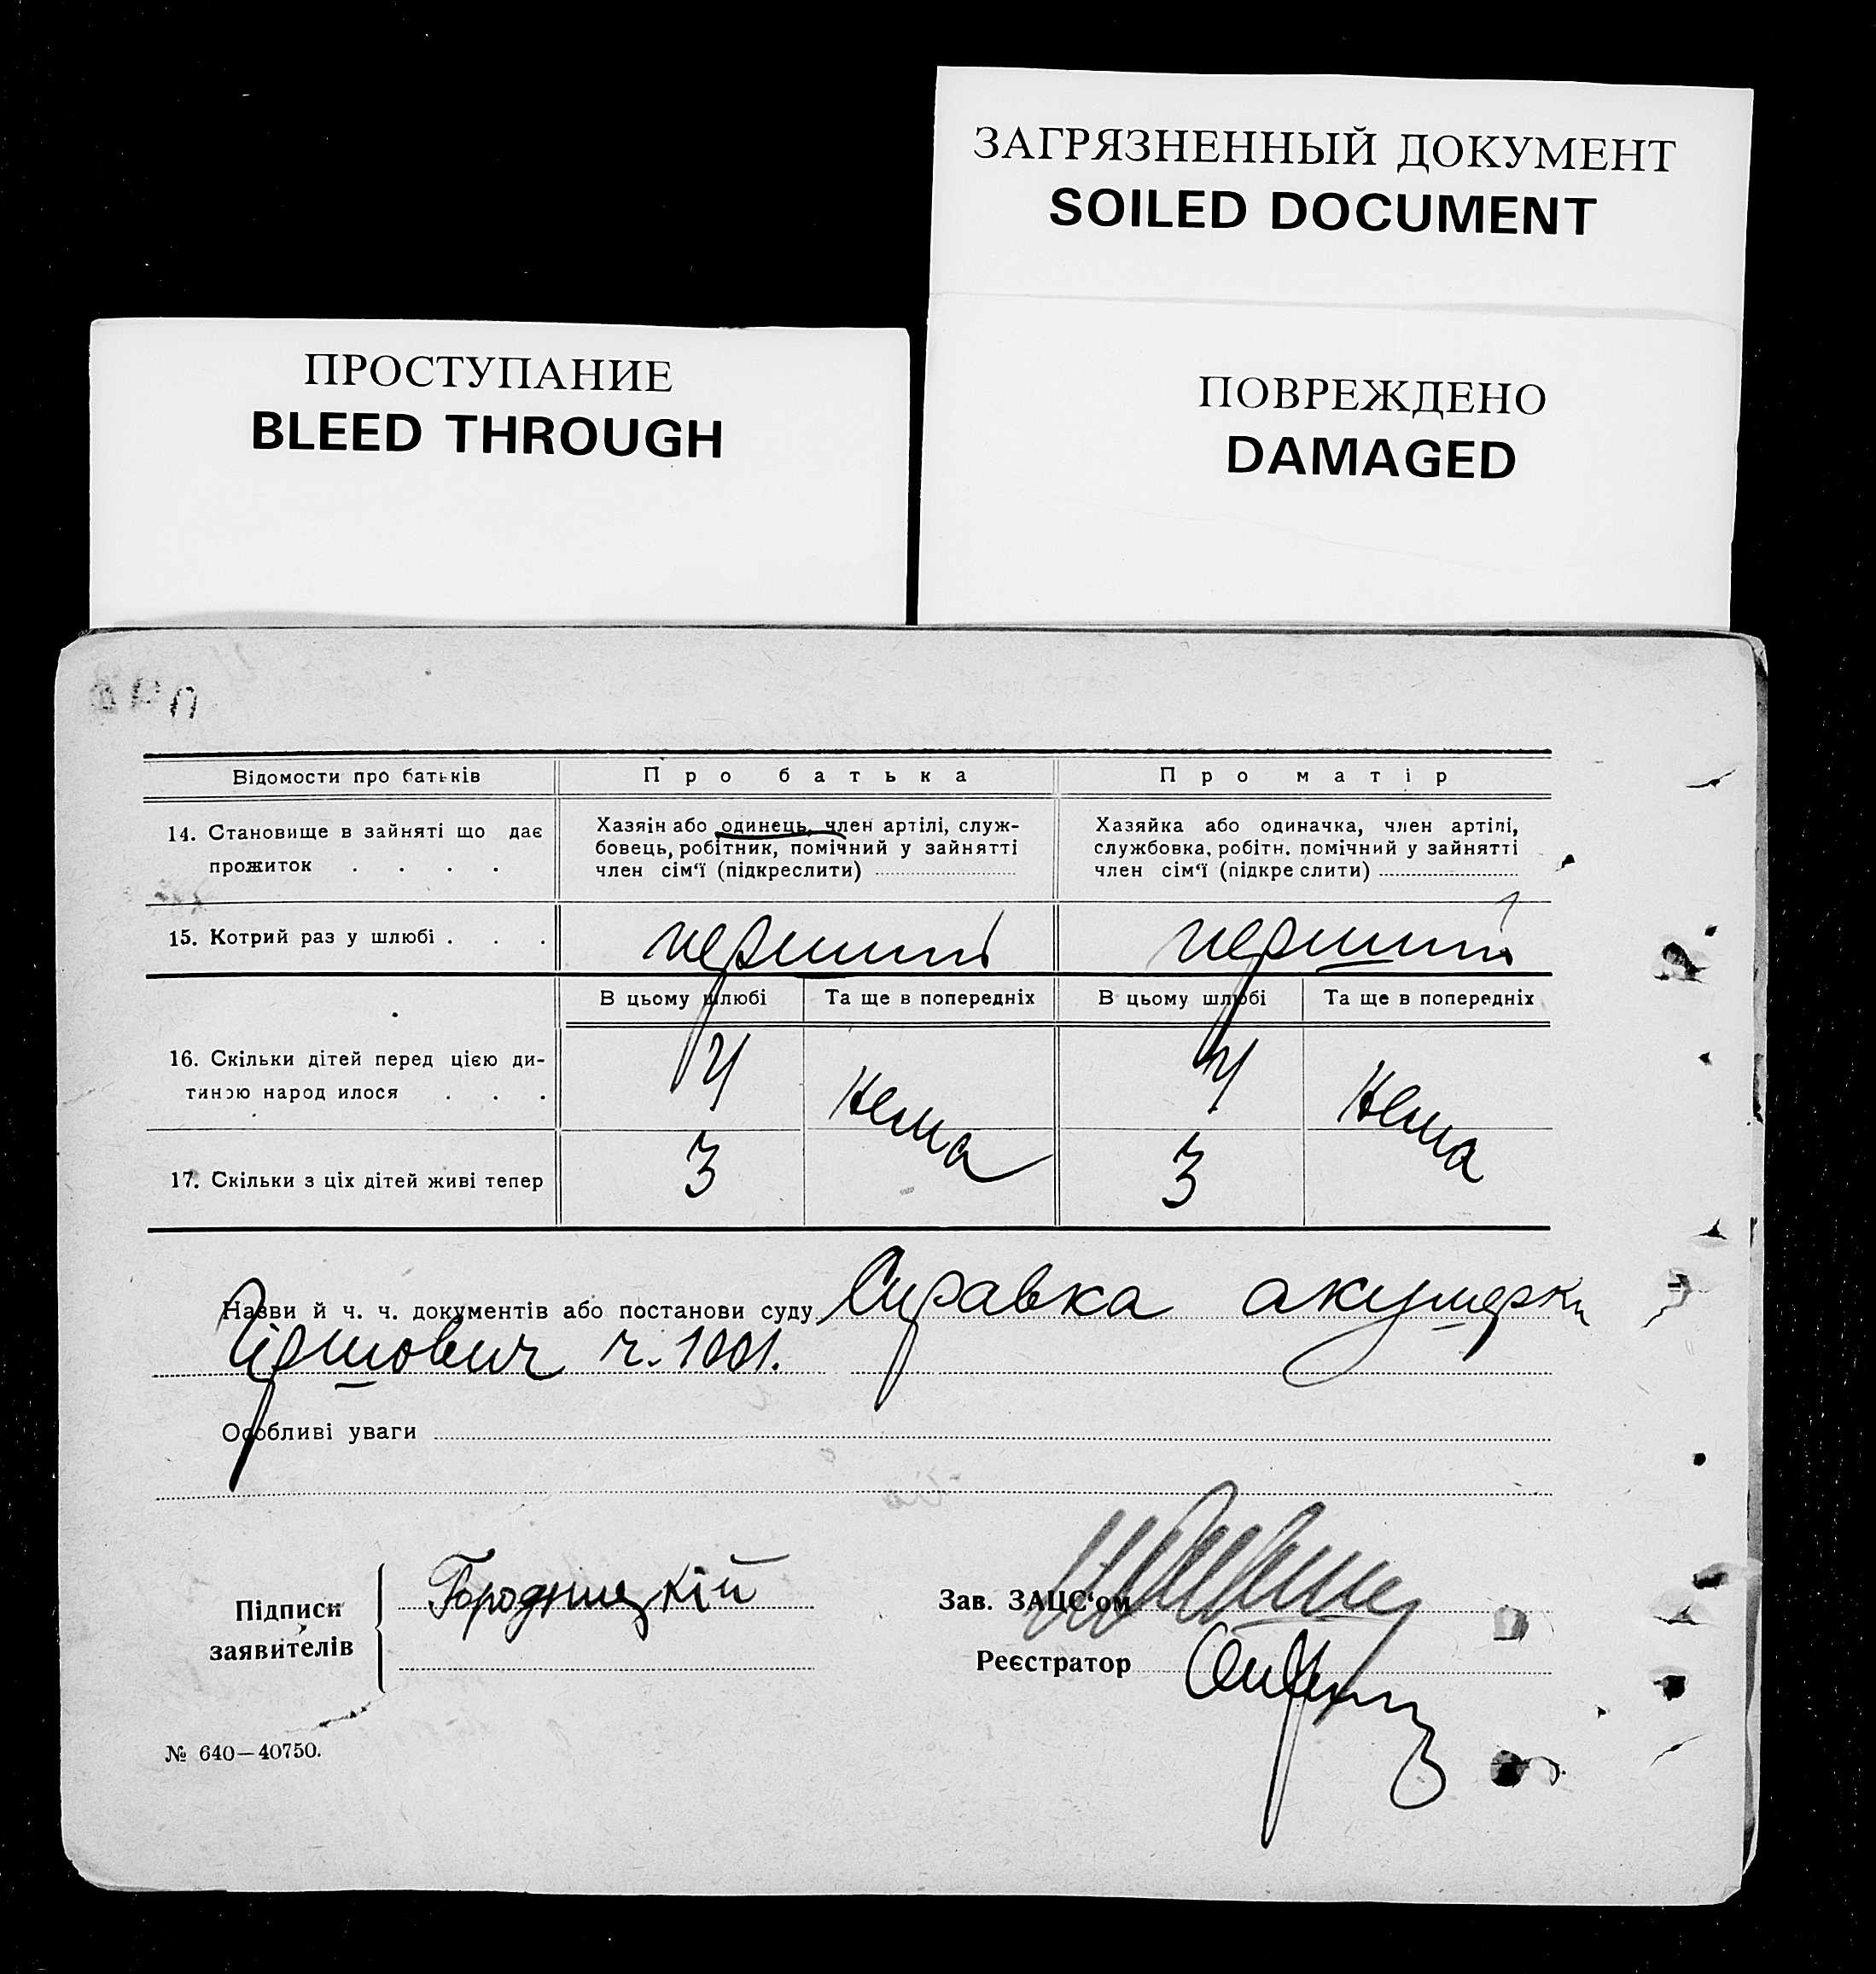 ЗАГРЯЗНЕННЫЙ ДОКУМЕНТ
SOILED DOCUMENT
ПРОСТУПАНИЕ
BLEED THROUGH
ПОВРЕЖДЕНО
DAMAGED
Відомости про батьків
Про батька
Про матір
14. Становище в зайняті що дає
прожиток . . . .
Хазяін або одинець, член артілі, служ-
бовець, робітник, помічний у зайнятті
член сім'ї (підкреслити)
Хазяйка або одиначка, член артілі,
службовка, робітн. помічний у зайнятті
член сім'ї (підкре слити)
15. Котрий раз у шлюбі . . .
перший
перший
В цьому шлюбі
Та ще в попередніх
В цьому шлюбі
Та ще в попередніх
16. Скільки дітей перед цією ди-
тиною народ илося . . .
4
Нема
4
Нема
17. Скільки з ціх дітей живі тепер
3
3
Назви й ч. ч. документів або постанови суду Справка акушерки
ч. 1001.
Особливі уваги
Підписи
заявителів
Городницкій
Зав. ЗАЦС'ом
Реєстратор
№ 640—40750.